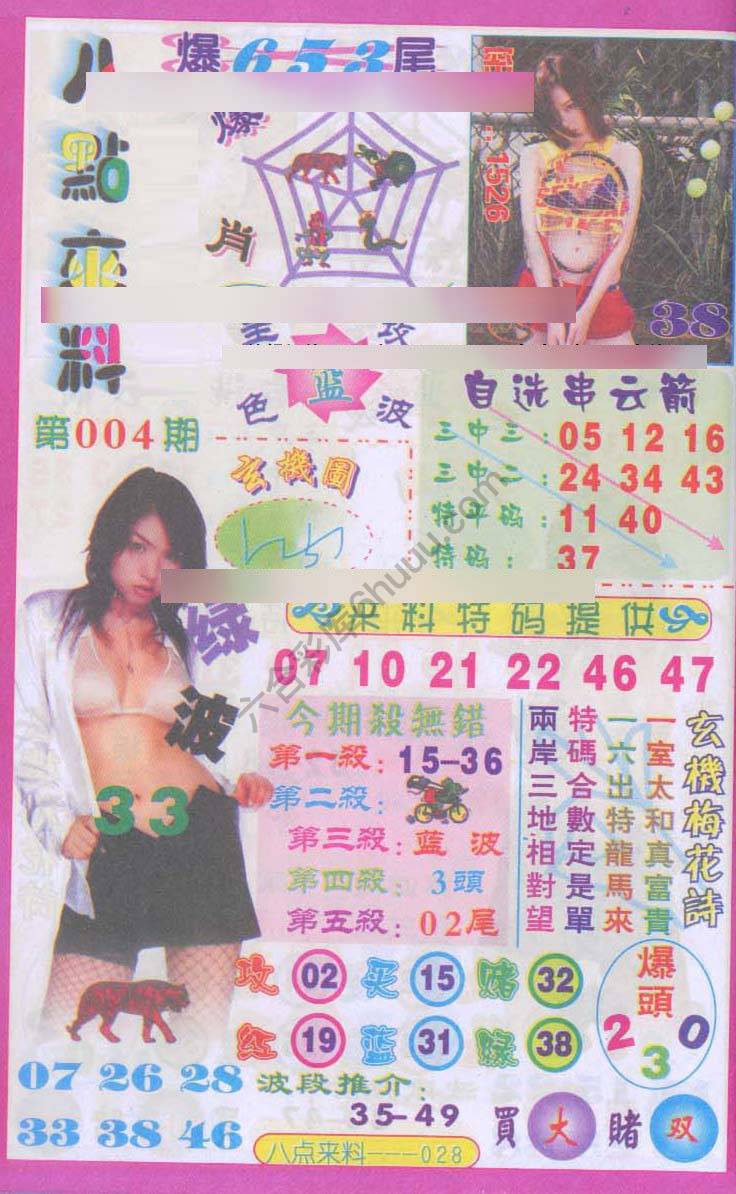 八點來料
爆653尾
爆
肖
1526
38
色 蓝 波
第004期
玄機圖
自选串云箭
三中三:05 12 16
三中二:24 34 43
特平码:11 40
特码:37
绿波
33
來料特码提供
07 10 21 22 46 47
今期殺無錯
第一殺:15-36
第二殺:
第三殺:蓝波
第四殺:3頭
第五殺:02尾
玄機梅花詩
一室太和真富貴
一六出特龍馬來
特碼合數定是單
兩岸三地相對望
攻 02 买 15 赌 32
红 19 蓝 31 绿 38
爆頭
2 3 0
07 26 28
33 38 46
波段推介:
35-49
買大賭双
八点来料---028
六合彩库6huuu.com